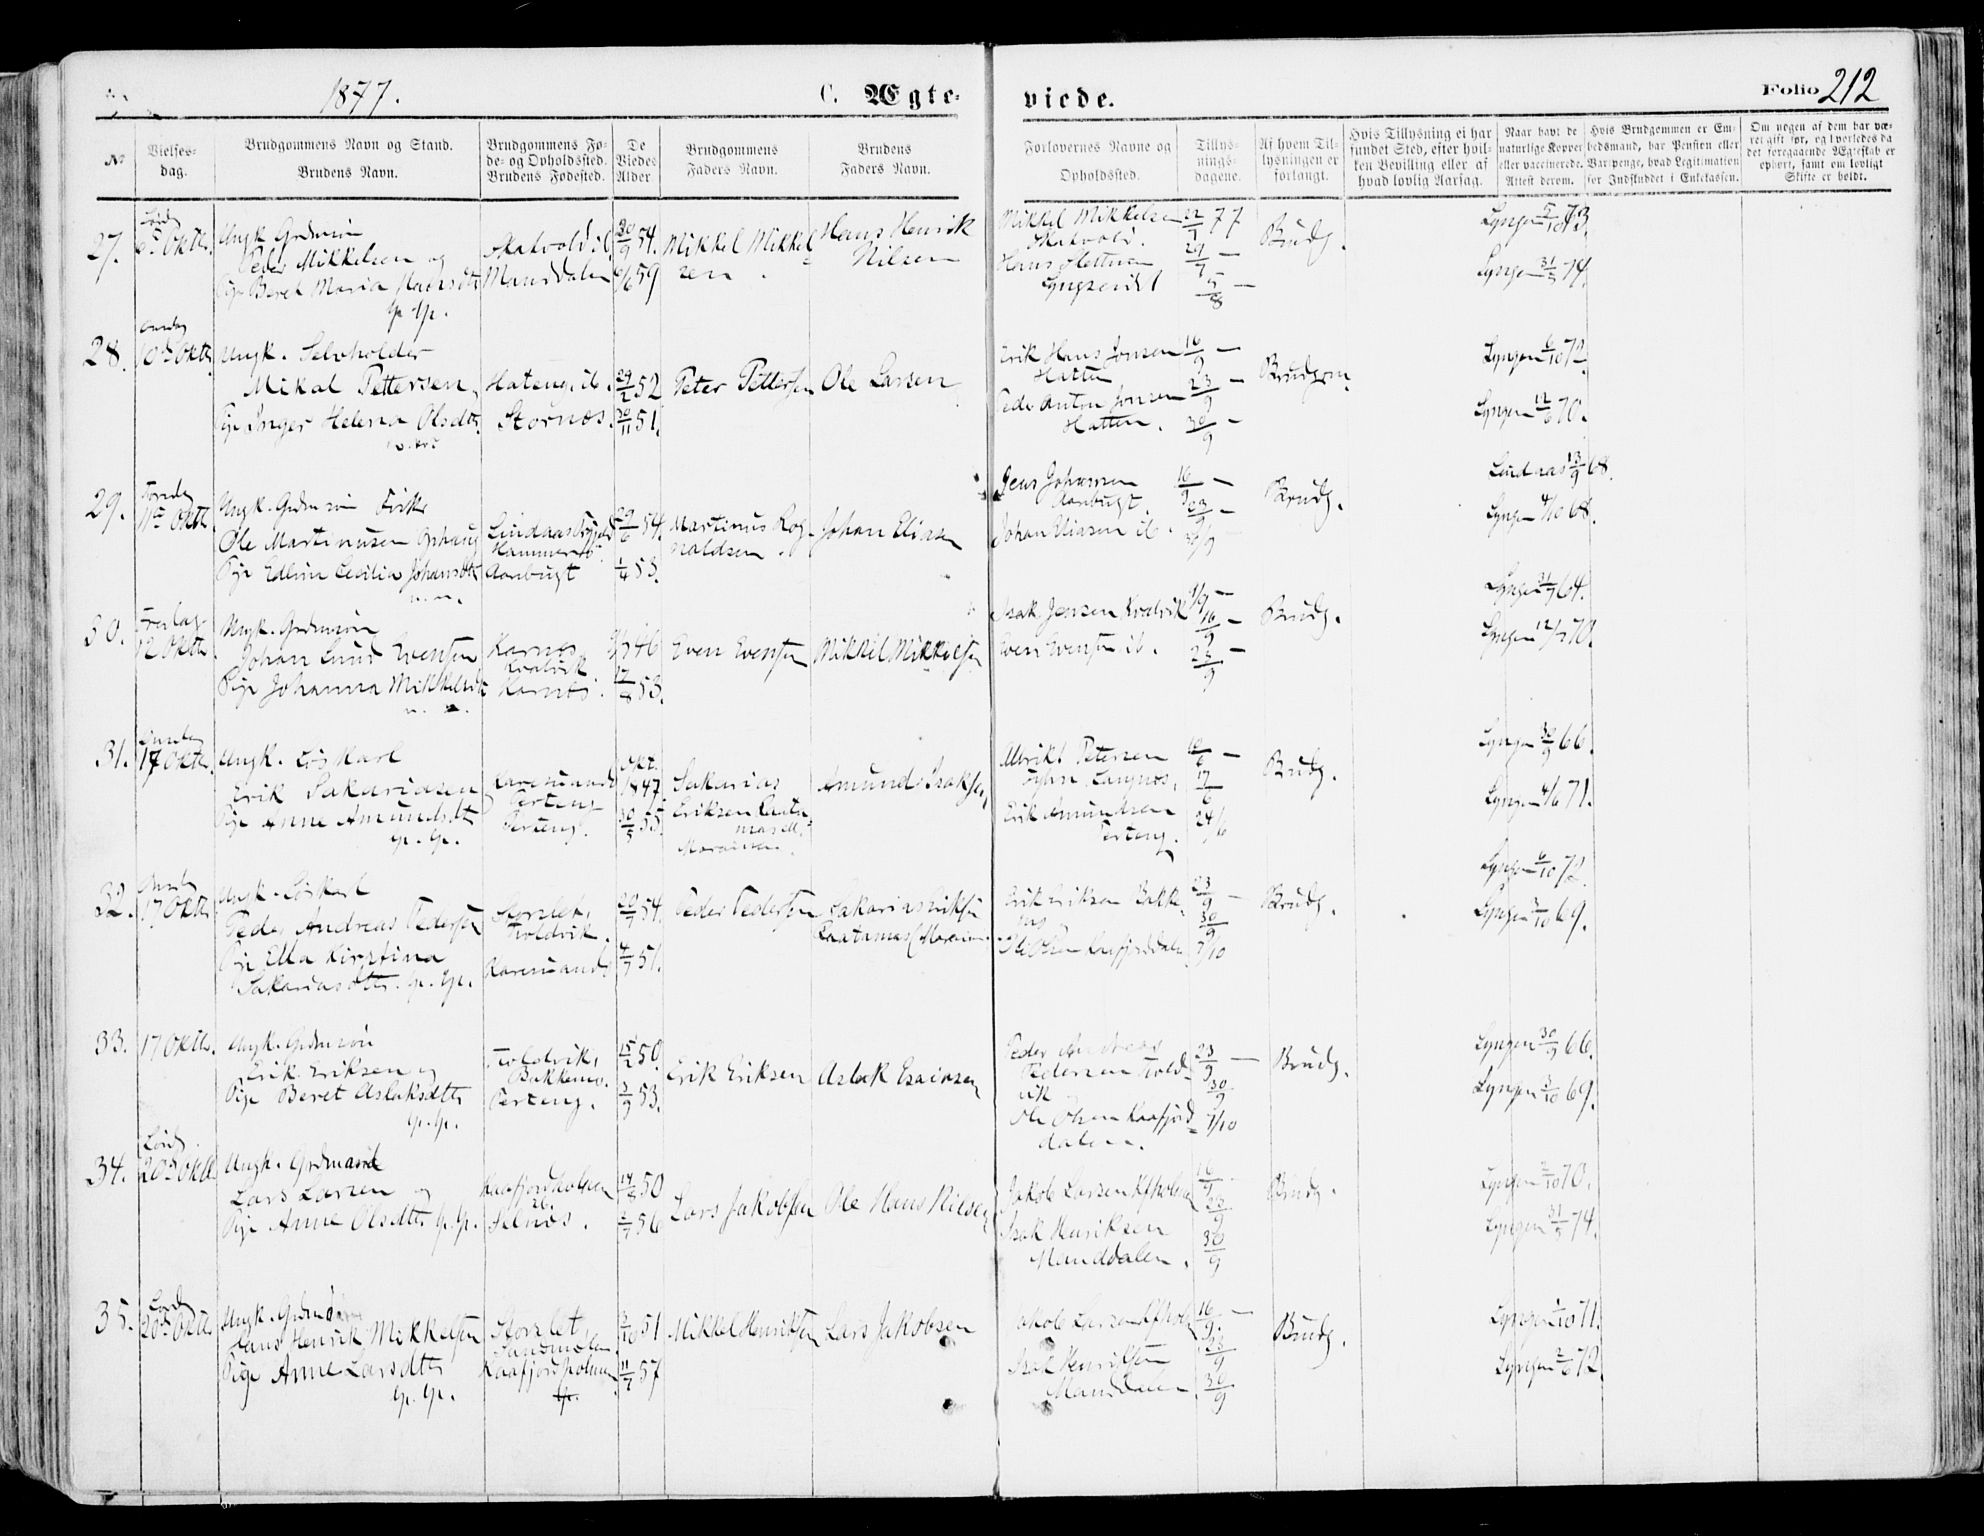 1877.
C. Ægte-
viede.
Folio 212
No
Vielses-
dag.
Brudgommens Navn og Stand.
Brudens Navn.
Brudgommens Fø-
de- og Opholdssted.
Brudens Fødested.
De
Viedes
Alder.
Brudgommens
Faders Navn.
Brudens
Faders Navn.
Forlovernes Navne og
Opholdssted.
Tillys-
nings-
dagene.
Af hvem Til-
lysningen er
forlangt.
Hvis Tillysning ei har
fundet Sted, efter hvil-
ken Bevilling eller af
hvad lovlig Aarsag.
Naar havt de
naturlige Kopper
eller vaccinerede.
Attest derom.
Hvis Brudgommen er Em-
bedsmand, har Pension eller
Varpenge, hvad Legitimation
for Indskuddet i Enkekassen.
Om nogen af dem har væ-
ret gift før, og hvorledes da
det foregaaende Ægteskab er
ophørt, samt om lovligt
Skifte er holdt.
27.
6te Oktbr.
Ungk. Grdmsøn
Peder Mikkelsen og
Pige Beret Maria Hansdtr
Skatvold ib.
Manddalen
30/9 54.
59
Mikkel Mikkel-
sen
Hans Henrik
Nilsen
Mikkel Mikkelsen
Skatvold.
Lyngseidet
22/7 77
29/7 —
5/8 —
Brudg.
Lyngen 73.
Lyngen 31/5 74.
28.
10de Oktbr.
Ungk. Selvholder
Mikal Pettersen
Pige Inger Helena Olsdtr.
Hateng, ib.
Stornæs.
29/2 52
30/11 51.
Peter Pettersen
Ole Larsen
Erik Hans Jonsen
Hatten
Peder Anton Jonsen
Hatten.
16/9 —
23/9 —
30/9 —
Brudgm
Lyngen 6/10 72.
Lyngen 12/6 70.
29.
Torsdag
11te Oktbr.
Ungk. Grdmsøn Fisker
Ole Martinusen
Pige Edlun Cecilia Johansdtr
Aarbugt
54.
1/4 53.
Martinus Rog-
naldsen.
Johan Eliasen
Jens Johansen
Aarbugt.
Johan Eliasen ib.
16/9 —
23/9 —
30/9 —
Brudg.
Lindaas 13/9 68.
Lyngen 4/10 68.
30.
Fredag
12 Oktbr.
Ungk. Grdmsøn
Johan Lund Evensen
Pige Johanna Mikkelsdtr
Karnes
Kvalvik
Karnes.
46
17/8 53.
Even Evensen
Mikkel Mikkelsen
Isak Jensen Kvalvik
Even Evensen ib.
16/9 —
23/9 —
Brudg.
Lyngen 31/7 64.
Lyngen 12/7 70.
31.
Onsdag
17 Oktbr.
Ungk. Løskarl
Erik Sakariasen
Pige Anne Amundsdtr
gp. gp.
Karesuando
Perteng
Perteng.
Okt.
1847.
30/5 55.
Sakarias
Eriksen
Amund Isaksen
Albrikt Petersen
Lyngnes.
Erik Amundsen
Perteng.
10/6 —
17/6
24/6
Brudg.
Lyngen 30/9 66.
Lyngen 4/6 71.
32.
Onsdag
17 Oktbr
Ungk. Løskarl
Peder Andreas Pedersen
Pige Ella Kirstina
Sakariasdtr. gp. gp.
Storslet,
Troldvik.
Karesuando
54.
4/7 51.
Peder Pedersen
Sakarias Eriksen
Erik Eriksen Bakke-
Ole Olsen Kaafjorddalen
23/9 —
30/9
7/10
Brudg.
Lyngen 6/10 72.
Lyngen 3/10 69.
33.
17 Oktbr.
Ungk. Grdmsøn
Erik Eriksen og
Pige Beret Aslaksdtr
gp. gp.
Troldvik,
Perteng.
15/2 50.
3/9 53.
Erik Eriksen
Aslak Esaiasen
Peder Andreas
Pedersen Trold-
vik
Ole Olsen Kaafjord-
dalen.
23/9 —
30/9
7/10
Brudg.
Lyngen 30/9 66.
Lyngen 3/10 69.
34.
Lørd.
20de Oktbr
Ungk. Grdmand
Lars Larsen og
Pige Anne Olsdtr gp. gp.
Kaafjordholmen
ib.
Selnæs.
14/8 50
2/7 56
Lars Jakobsen
Ole Hans Nilsen
Jakob Larsen Kfholm
Isak Henriksen
Manddalen.
16/9
23/9
30/9
Brudg.
Lyngen 2/10 70.
Lyngen 31/5 74.
35.
Lørd.
20de Oktbr
Ungk. Grdmsøn
Hans Henrik Mikkelsen
Pige Anne Larsdtr
gp. gp.
Storslet,
Kaafjordholmen
2/10 51
11/7 57
Mikkel Henriksen
Lars Jakobsen
Jakob Larsen Kfholm
Isak Henriksen
Manddalen
16/9 —
23/9
30/9
Brudg.
Lyngen 1/10 71.
Lyngen 2/6 72.